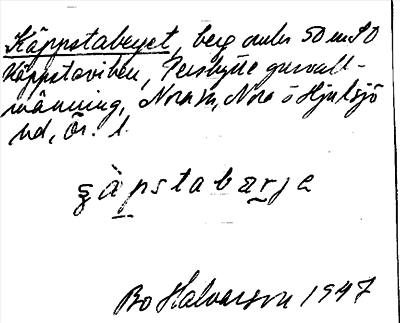 Käppstaberget, berg omkr 50 m SO
Käppstaviken, Pershytte gruvall-
männing, Nora sn, Nora o Hjulsjö
hd, Ör. l.
ʂàpstabærje
Bo Halvarson 1947